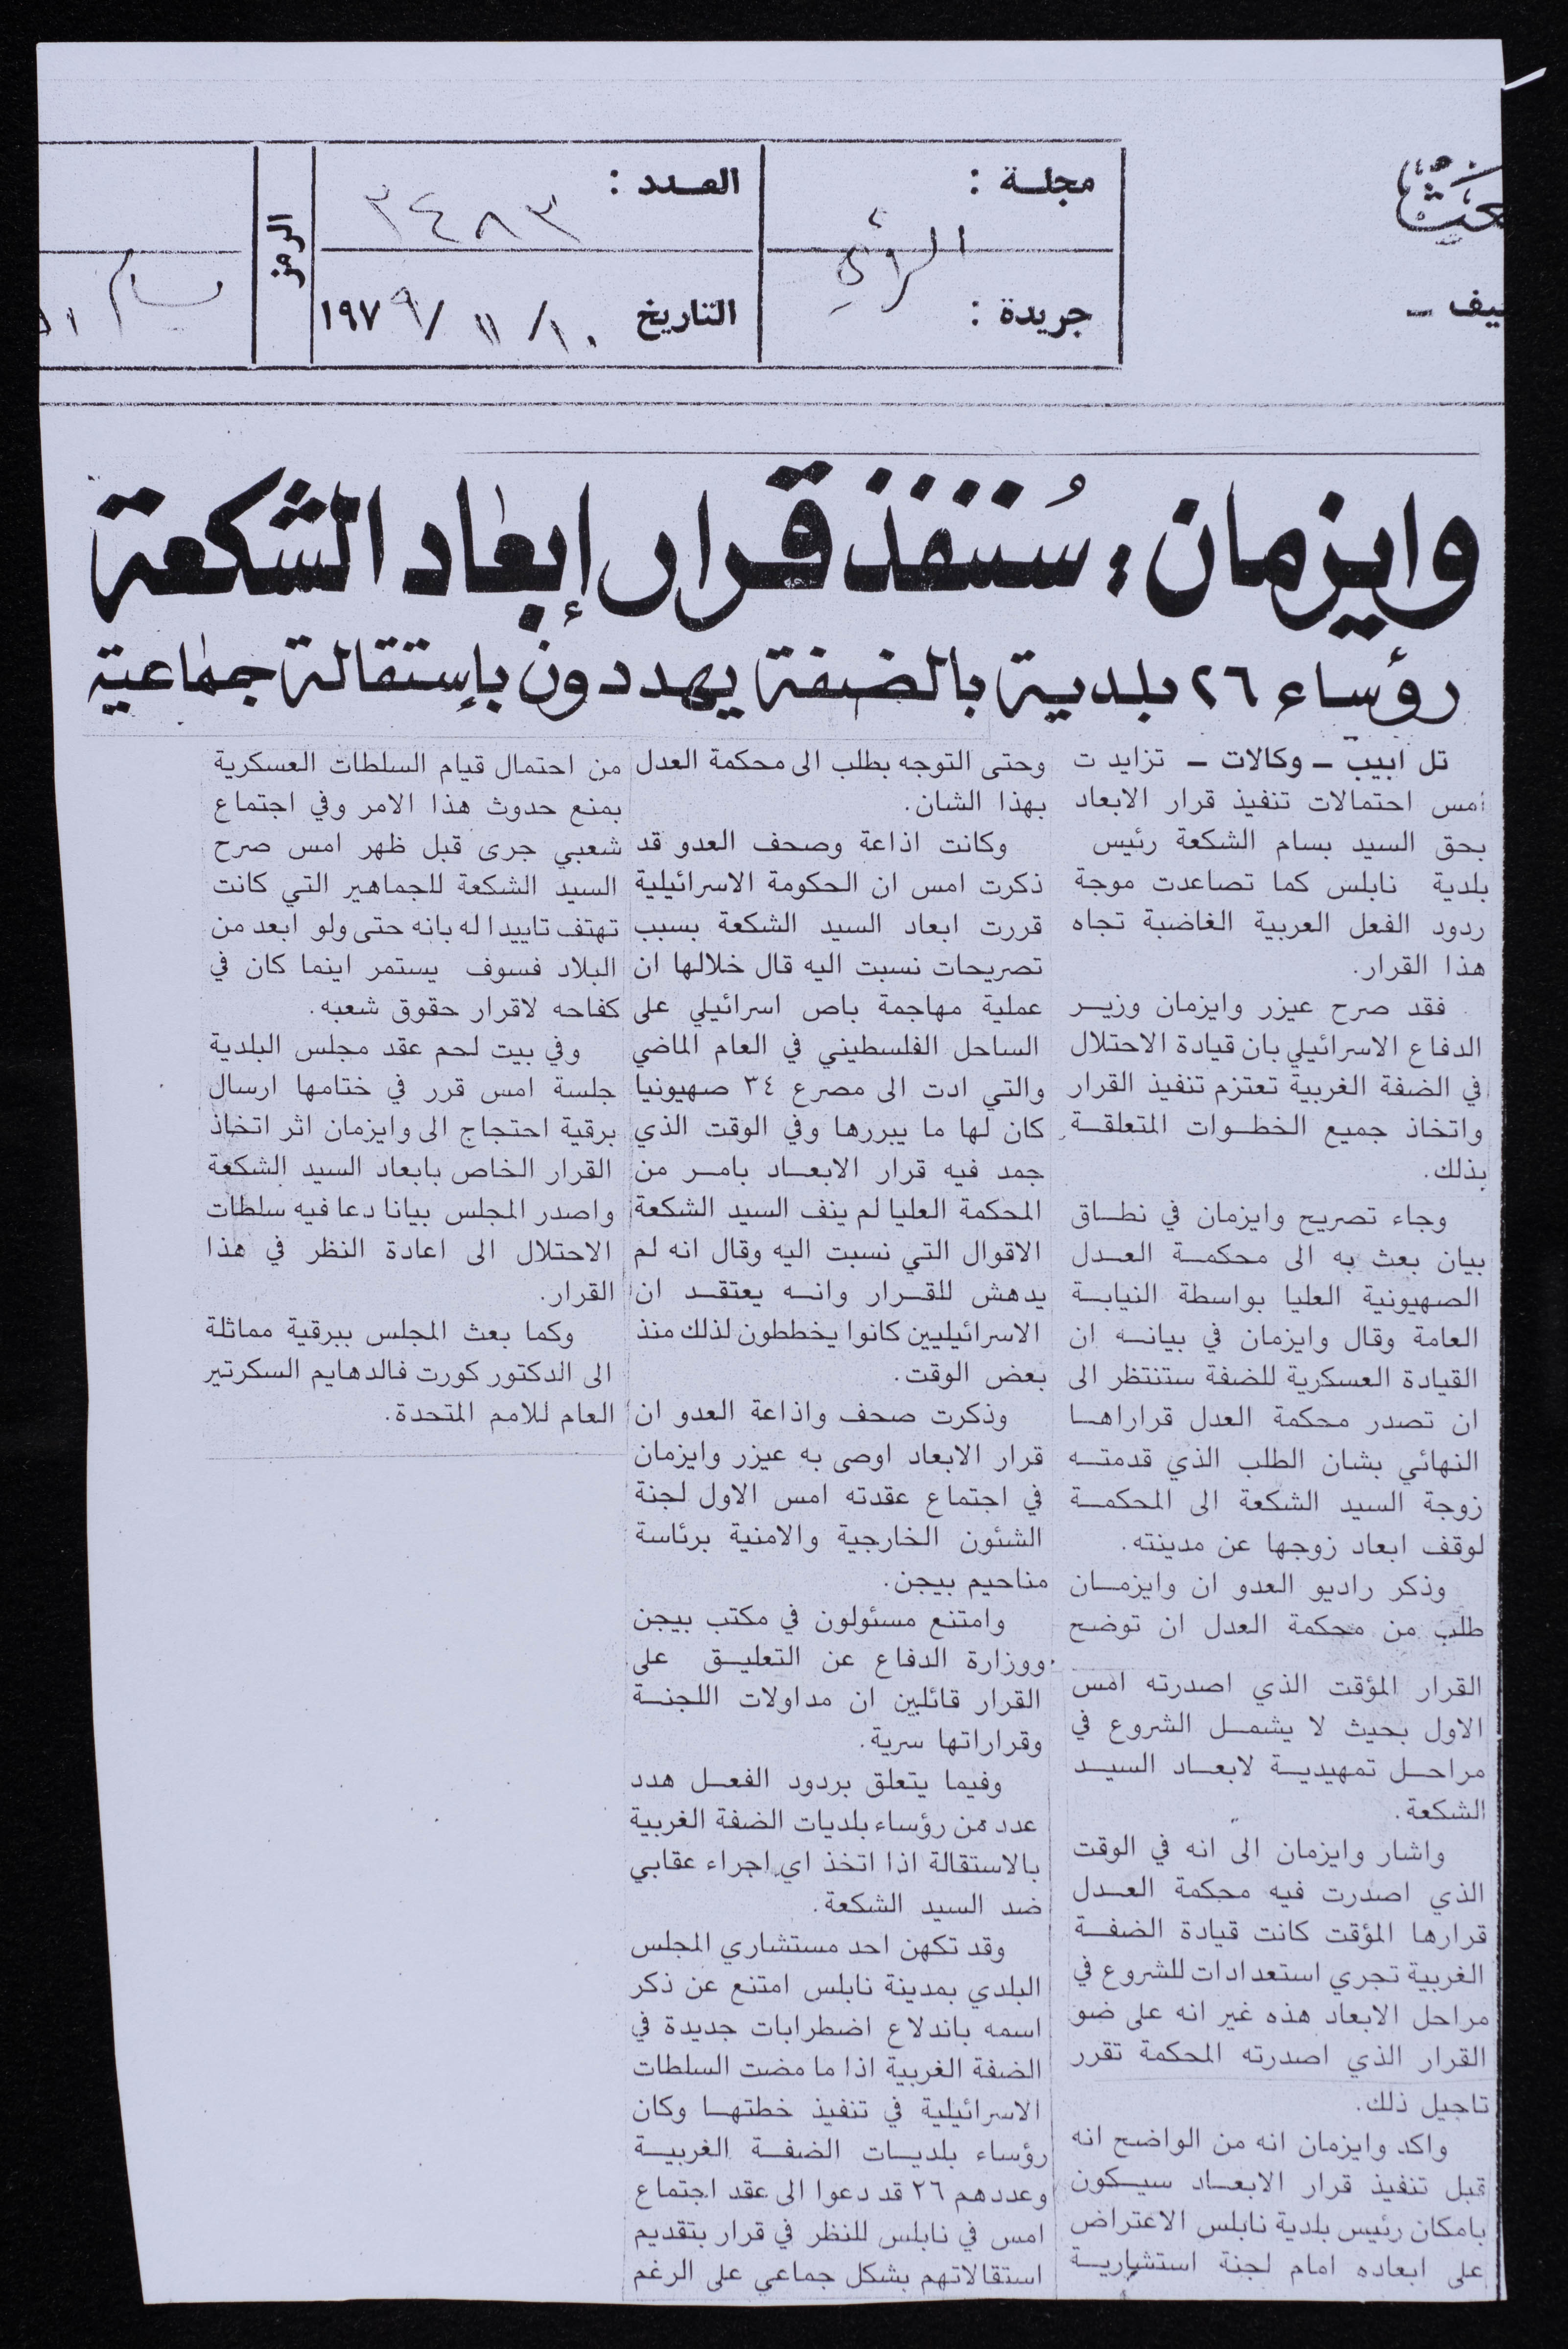 مجلة :
العدد : ٣٤٨٣
الرأي
الرمز
جريدة :
التاريخ ١٠/ ١١ /١٩٧٩
بسام
وايزمان: سُننفذ قرار إبعاد الشكعة
رؤساء ٢٦ بلدية بالضفة يهددون بإستقالة جماعية
تل ابيب ــ وكالات ــ تزايدت
امس احتمالات تنفيذ قرار الابعاد
بحق السيد بسام الشكعة رئيس
بلدية نابلس كما تصاعدت موجة
ردود الفعل العربية الغاضبة تجاه
هذا القرار.
فقد صرح عيزر وايزمان وزير
الدفاع الاسرائيلي بان قيادة الاحتلال
في الضفة الغربية تعتزم تنفيذ القرار
واتخاذ جميع الخطوات المتعلقة
بذلك.
وجاء تصريح وايزمان في نطاق
بيان بعث به الى محكمة العدل
الصهيونية العليا بواسطة النيابة
العامة وقال وايزمان في بيانه ان
القيادة العسكرية للضفة ستنتظر الى
ان تصدر محكمة العدل قراراها
النهائي بشان الطلب الذي قدمته
زوجة السيد الشكعة الى المحكمة
لوقف ابعاد زوجها عن مدينته.
وذكر راديو العدو ان وايزمان
طلب من محكمة العدل ان توضح
القرار المؤقت الذي اصدرته امس
الاول بحيث لا يشمل الشروع في
مراحل تمهيدية لابعاد السيد
الشكعة.
واشار وايزمان الى انه في الوقت
الذي اصدرت فيه محكمة العدل
قرارها المؤقت كانت قيادة الضفة
الغربية تجري استعدادات للشروع في
مراحل الابعاد هذه غير انه على ضو
القرار الذي اصدرته المحكمة تقرر
تاجيل ذلك.
واكد وايزمان انه من الواضح انه
قبل تنفيذ قرار الابعاد سيكون
بامكان رئيس بلدية نابلس الاعتراض
على ابعاده امام لجنة استشارية
وحتى التوجه بطلب الى محكمة العدل
بهذا الشان.
وكانت اذاعة وصحف العدو قد
ذكرت امس ان الحكومة الاسرائيلية
قررت ابعاد السيد الشكعة بسبب
تصريحات نسبت اليه قال خلالها ان
عملية مهاجمة باص اسرائيلي على
الساحل الفلسطيني في العام الماضي
والتي ادت الى مصرع ٣٤ صهيونيا
كان لها ما يبررها وفي الوقت الذي
جمد فيه قرار الابعاد بامر من
المحكمة العليا لم ينف السيد الشكعة
الاقوال التي نسبت اليه وقال انه لم
يدهش للقرار وانه يعتقد ان
الاسرائيليين كانوا يخططون لذلك منذ
بعض الوقت.
وذكرت صحف واذاعة العدو ان
قرار الابعاد اوصى به عيزر وايزمان
في اجتماع عقدته امس الاول لجنة
الشئون الخارجية والامنية برئاسة
مناحيم بيجن.
وامتنع مسئولون في مكتب بيجن
ووزارة الدفاع عن التعليق على
القرار قائلين ان مداولات اللجنة
وقراراتها سرية.
وفيما يتعلق بردود الفعل هدد
عدد من رؤساء بلديات الضفة الغربية
بالاستقالة اذا اتخذ اي اجراء عقابي
ضد السيد الشكعة.
وقد تكهن احد مستشاري المجلس
البلدي بمدينة نابلس امتنع عن ذكر
اسمه باندلاع اضطرابات جديدة في
الضفة الغربية اذا ما مضت السلطات
الاسرائيلية في تنفيذ خطتها وكان
رؤساء بلديات الضفة الغربية
وعددهم ٢٦ قد دعوا الى عقد اجتماع
امس في نابلس للنظر في قرار بتقديم
استقالاتهم بشكل جماعي على الرغم
من احتمال قيام السلطات العسكرية
بمنع حدوث هذا الامر وفي اجتماع
شعبي جرى قبل ظهر امس صرح
السيد الشكعة للجماهير التي كانت
تهتف تاييدا له بانه حتى ولو ابعد من
البلاد فسوف يستمر اينما كان في
كفاحه لاقرار حقوق شعبه.
وفي بيت لحم عقد مجلس البلدية
جلسة امس قرر في ختامها ارسال
برقية احتجاج الى وايزمان اثر اتخاذ
القرار الخاص بابعاد السيد الشكعة
واصدر المجلس بيانا دعا فيه سلطات
الاحتلال الى اعادة النظر في هذا
القرار.
وكما بعث المجلس ببرقية مماثلة
الى الدكتور كورت فالدهايم السكرتير
العام للامم المتحدة.